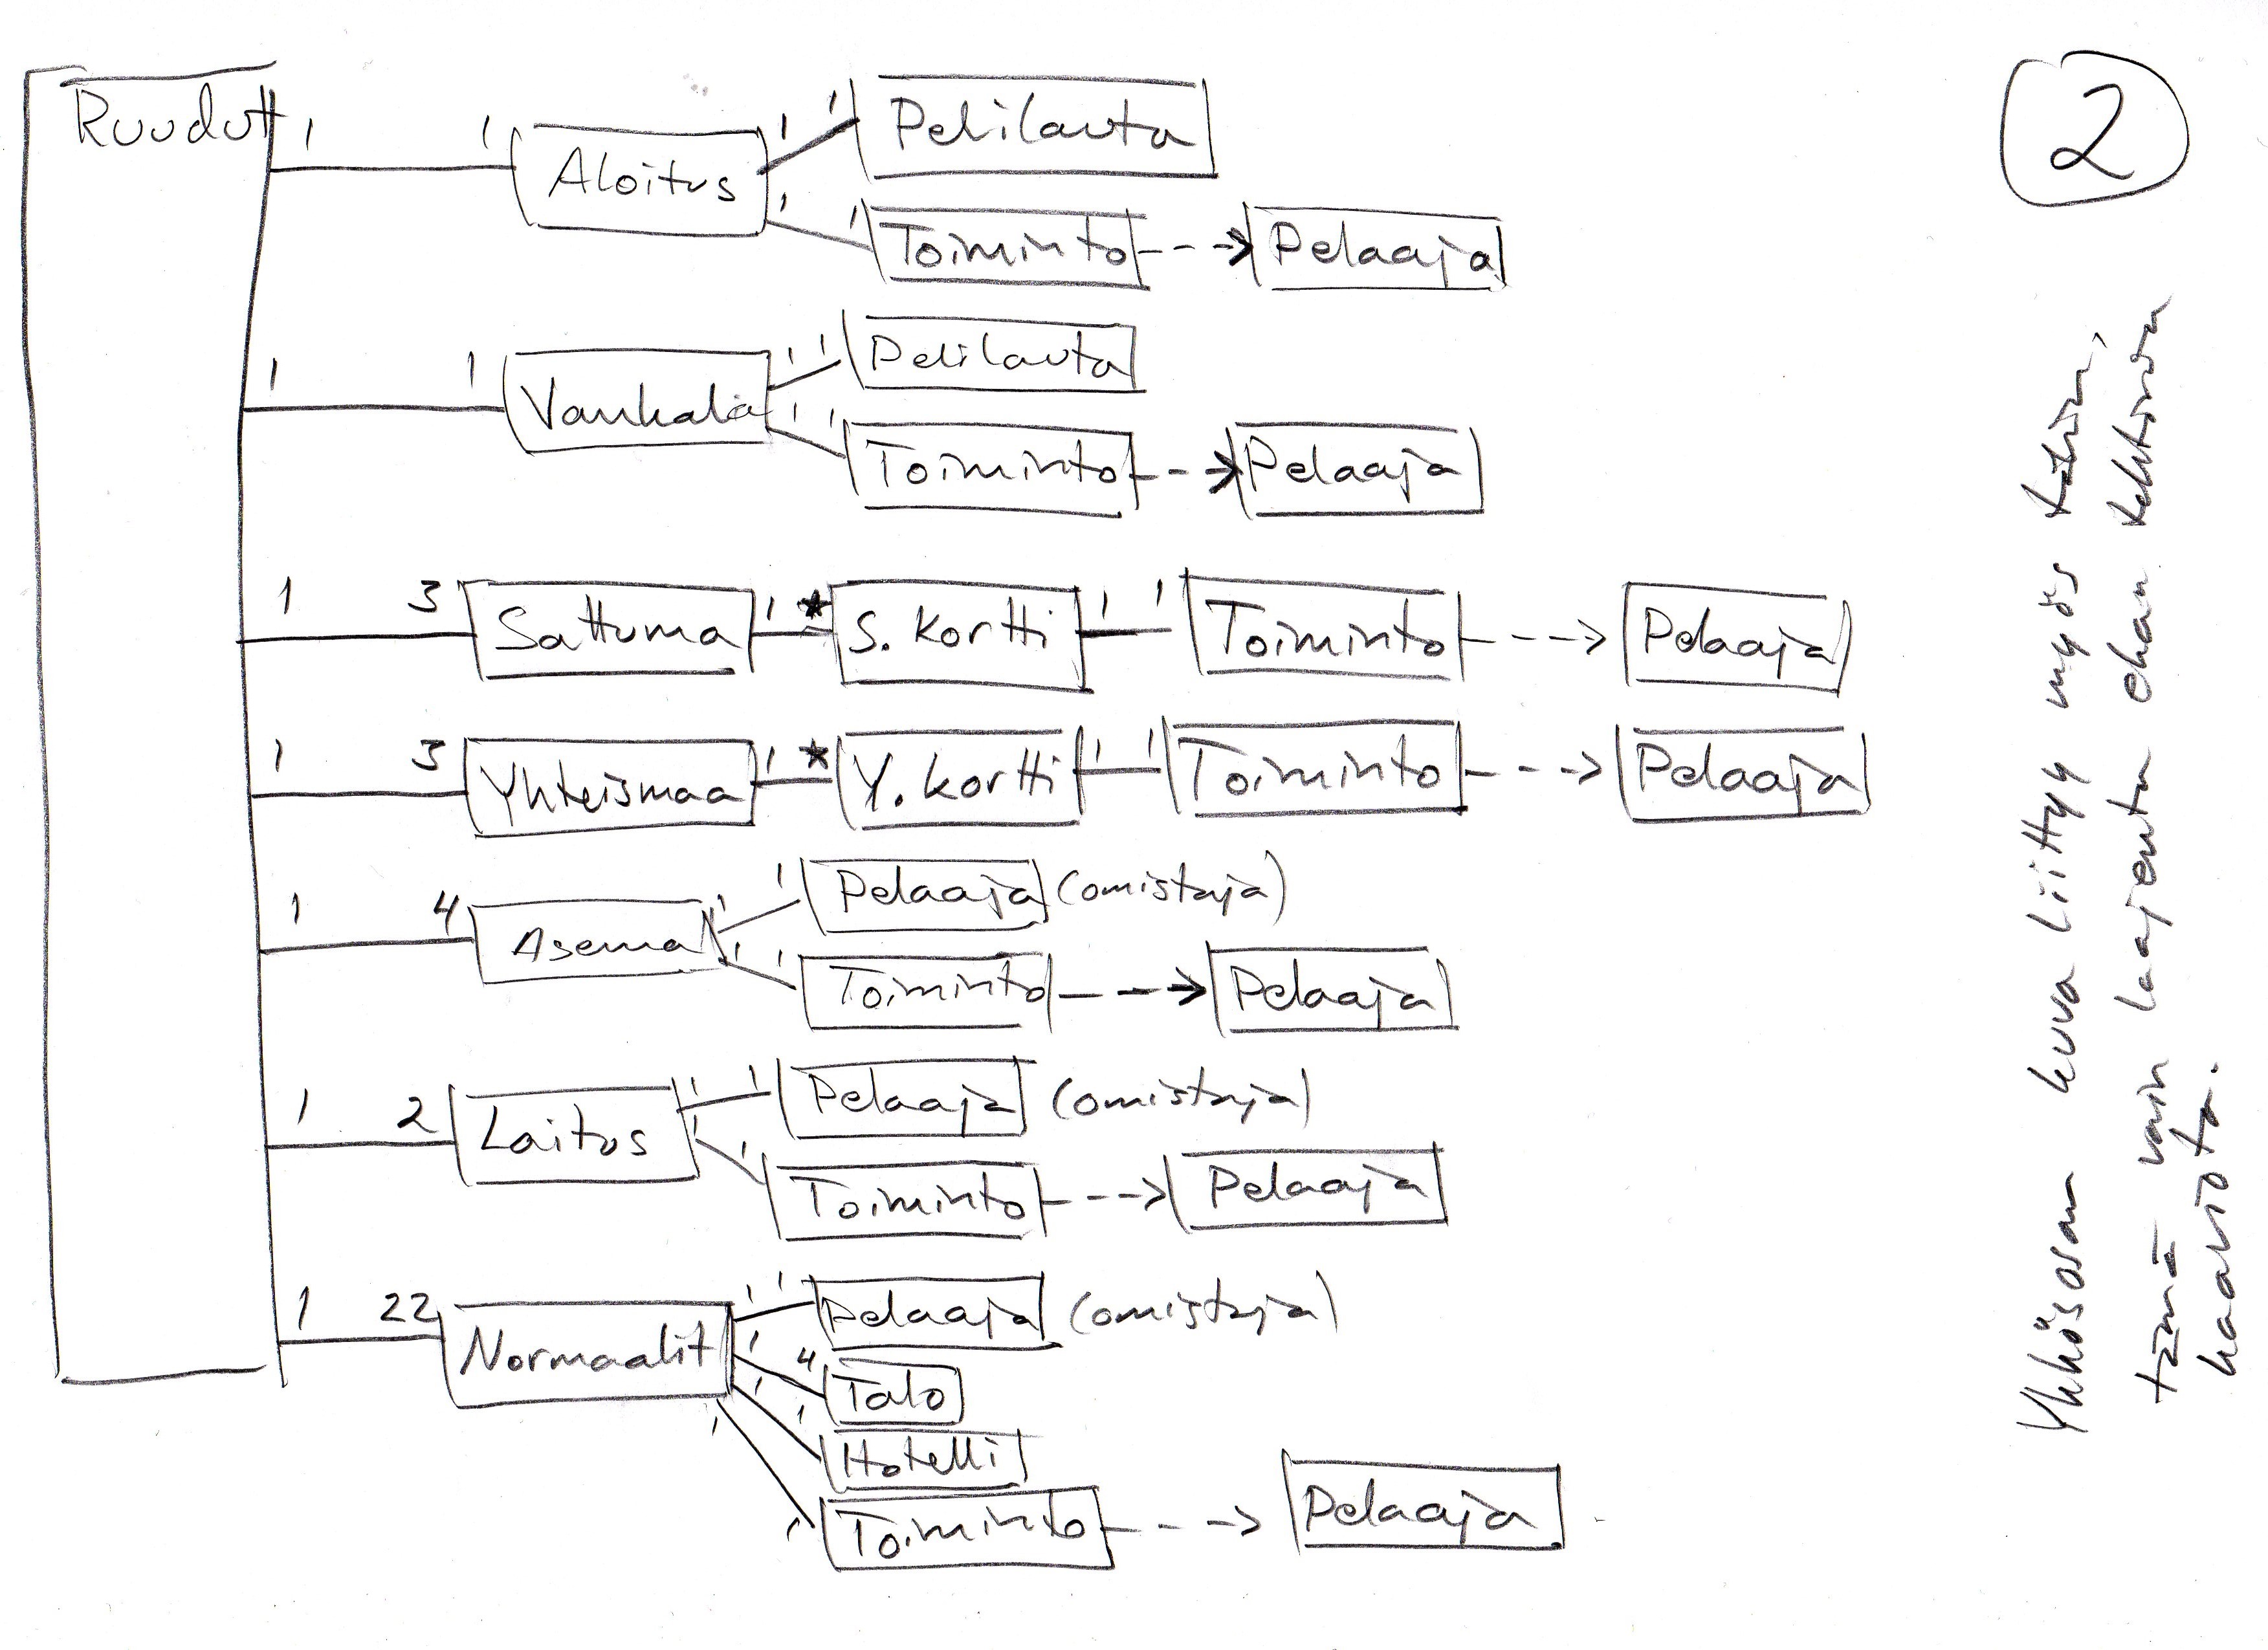 Ruudut
2
1 1 Aloitus 1 1 Pelilauta
1 1 Toiminto Pelaaja
1 1 Vankala 1 1 Pelilauta
1 1 Toiminto Pelaaja
1 3 Sattuma 1 * S. kortti 1 1 Toiminto Pelaaja
1 3 Yhteismaa 1 * Y. kortti 1 1 Toiminto Pelaaja
1 4 Asema 1 1 Pelaaja (omistaja)
1 1 Toiminto Pelaaja
1 2 Laitos 1 1 Pelaaja (omistaja)
1 1 Toiminto Pelaaja
1 22 Normaalit 1 1 Pelaaja (omistaja)
1 4 Talo
1 1 Hotelli
1 1 Toiminto Pelaaja
Ykkösosan kuva liittyy myös tähän,
tämä vain laajenta ekan tehtävän
kaaviota.